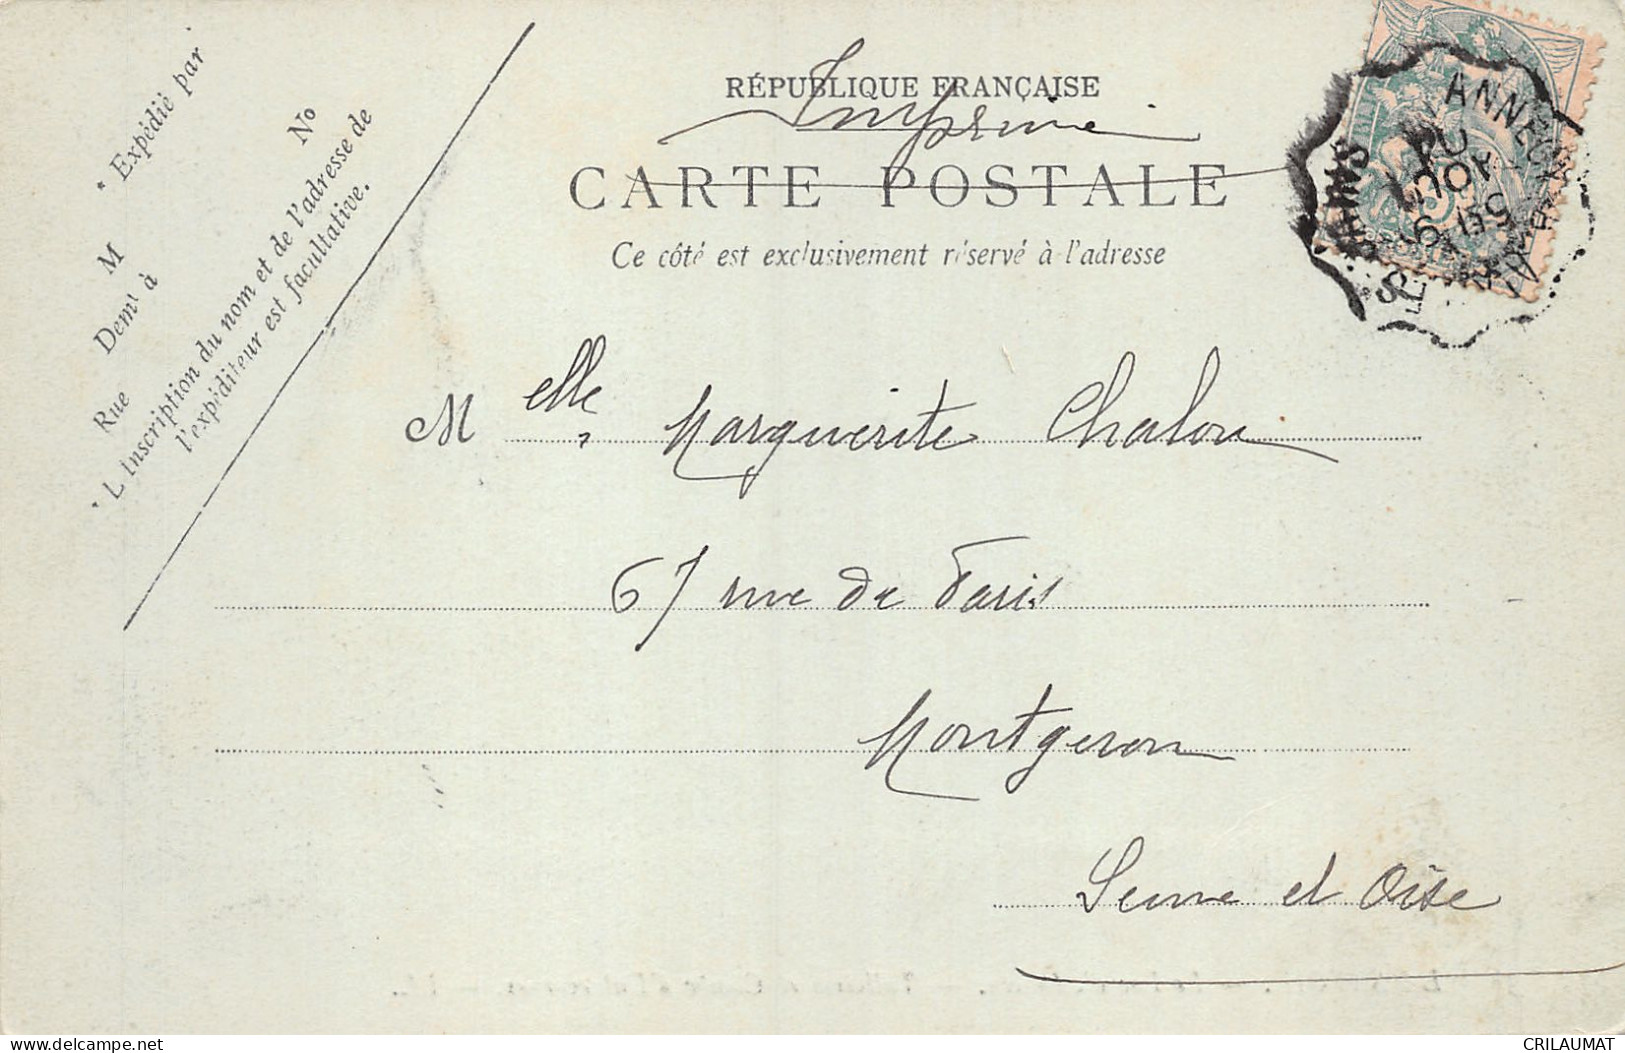 RÉPUBLIQUE FRANÇAISE
Imprimé
CARTE POSTALE
Ce côté est exclusivement réservé à l'adresse
* Expédié par
No
M
Demt à
Rue
* L'Inscription du nom et de l'adresse de
l'expéditeur est facultative.
ANNECY
Melle Marguerite Chalon
67 rue de Paris
Montgeron
Seine et Oise
CRILAUMAT